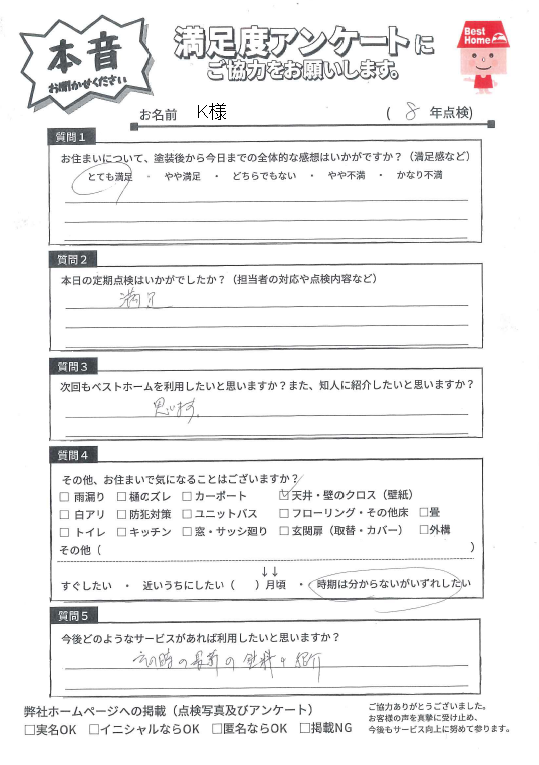 本音
お聞かせください
満足度アンケートに
ご協力をお願いします。
Best Home
お名前 K様 ( 8 年点検)
質問1
お住まいについて、塗装後から今日までの全体的な感想はいかがですか？（満足感など）
とても満足 ・ やや満足 ・ どちらでもない ・ やや不満 ・ かなり不満
質問2
本日の定期点検はいかがでしたか？（担当者の対応や点検内容など）
満足
質問3
次回もベストホームを利用したいと思いますか？また、知人に紹介したいと思いますか？
思います。
質問4
その他、お住まいで気になることはございますか？
□ 雨漏り □ 樋のズレ □ カーポート ☑ 天井・壁のクロス（壁紙）
□ 白アリ □ 防犯対策 □ ユニットバス □ フローリング・その他床 □畳
□ トイレ □ キッチン □ 窓・サッシ廻り □ 玄関扉（取替・カバー） □外構
その他（ ）
↓↓
すぐしたい ・ 近いうちにしたい（ ）月頃 ・ 時期は分からないがいずれしたい
質問5
今後どのようなサービスがあれば利用したいと思いますか？
その時の最新の塗料の紹介
弊社ホームページへの掲載（点検写真及びアンケート）
□実名OK □イニシャルならOK □匿名ならOK □掲載NG
ご協力ありがとうございました。
お客様の声を真摯に受け止め、
今後もサービス向上に努めて参ります。